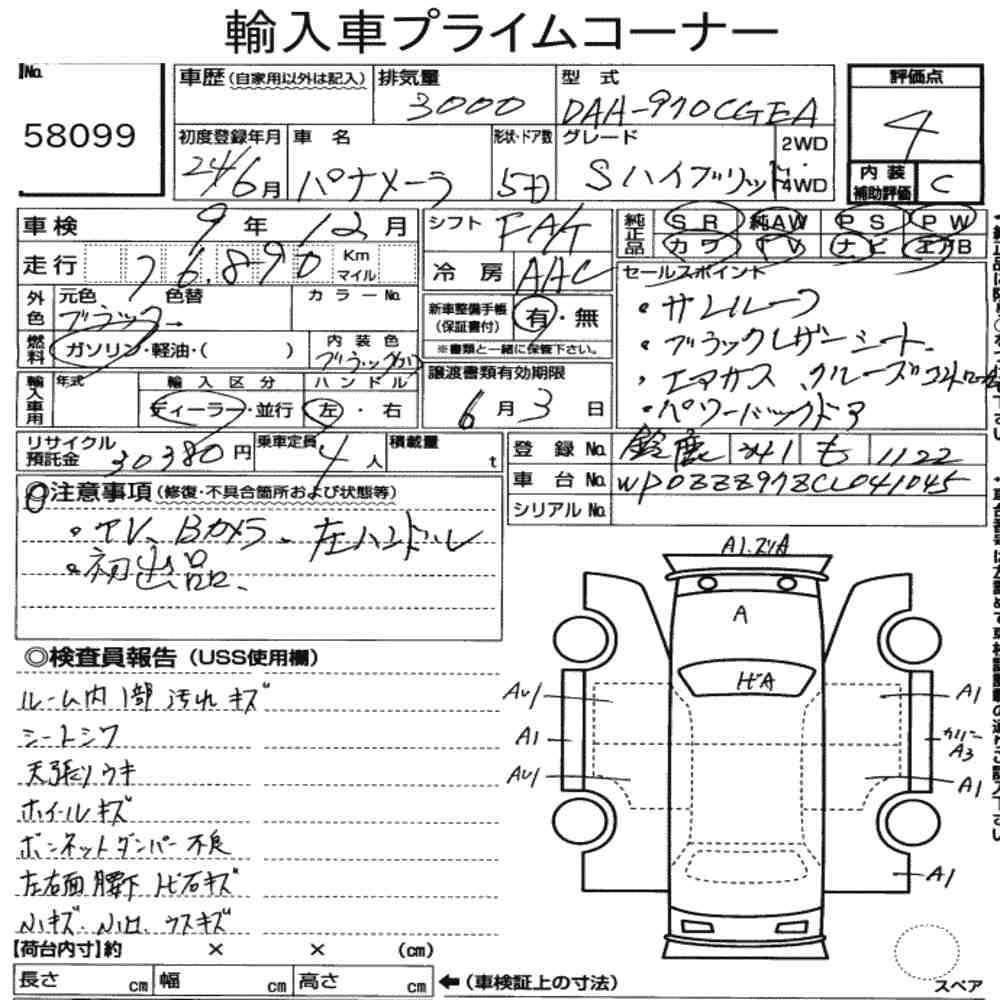 輸入車プライムコーナー
No. 58099
車歴(自家用以外は記入)
排気量 3000
型式 DAA-970CGEA
評価点 4
初度登録年月 24/6月
車名 パナメーラ
形状・ドア数 5D
グレード Sハイブリッド
2WD・4WD
内装補助評価 C
車検 9年12月
シフト FA/T
純正品 SR 純AW PS PW
カワ TV ナビ エアB
走行 76,890 Km マイル
冷房 AAC
セールスポイント
・サンルーフ
・ブラックレザーシート
・エアサス クルーズコントロール
・パワーバックドア
外色 元色 ブラック→ 色替 カラーNo.
新車整備手帳(保証書付) 有・無
※書類と一緒に保管下さい。
燃料 ガソリン・軽油・( )
内装色 ブラック
譲渡書類有効期限 6月3日
輸入車用 年式 輸入区分 ディーラー・並行 ハンドル 左・右
リサイクル預託金 30380円
乗車定員 4人
積載量 t
登録No. 鈴鹿 341 も 1122
車台No. WP0ZZZ97ZCL041045
シリアルNo.
◎注意事項(修復・不具合箇所および状態等)
・TV、Bカメラ、左ハンドル
・初出品、
◎検査員報告(USS使用欄)
ルーム内1部汚れキズ
シートシワ
天張りウキ
ホイールキズ
ボンネットダンパー不良
左右面腰下トビ石キズ
小キズ、小凹、ウスキズ
A1.スリA
A
ビA
AU1
A1
AU1
A1
カリハ゛ー A3
A1
A1
【荷台内寸】約 × × (cm)
長さ cm 幅 cm 高さ cm ←(車検証上の寸法)
スペア